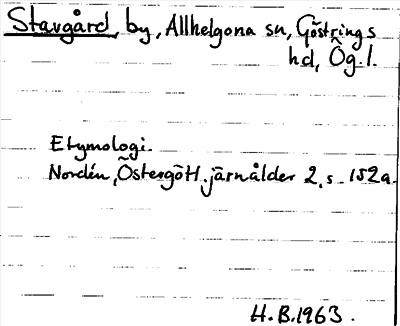 Stavgård, by, Allhelgona sn, Göstrings
hd, Ög.l.
Etymologi.
Nordén, Östergötl. järnålder 2, s. 152a.
H.B.1963.